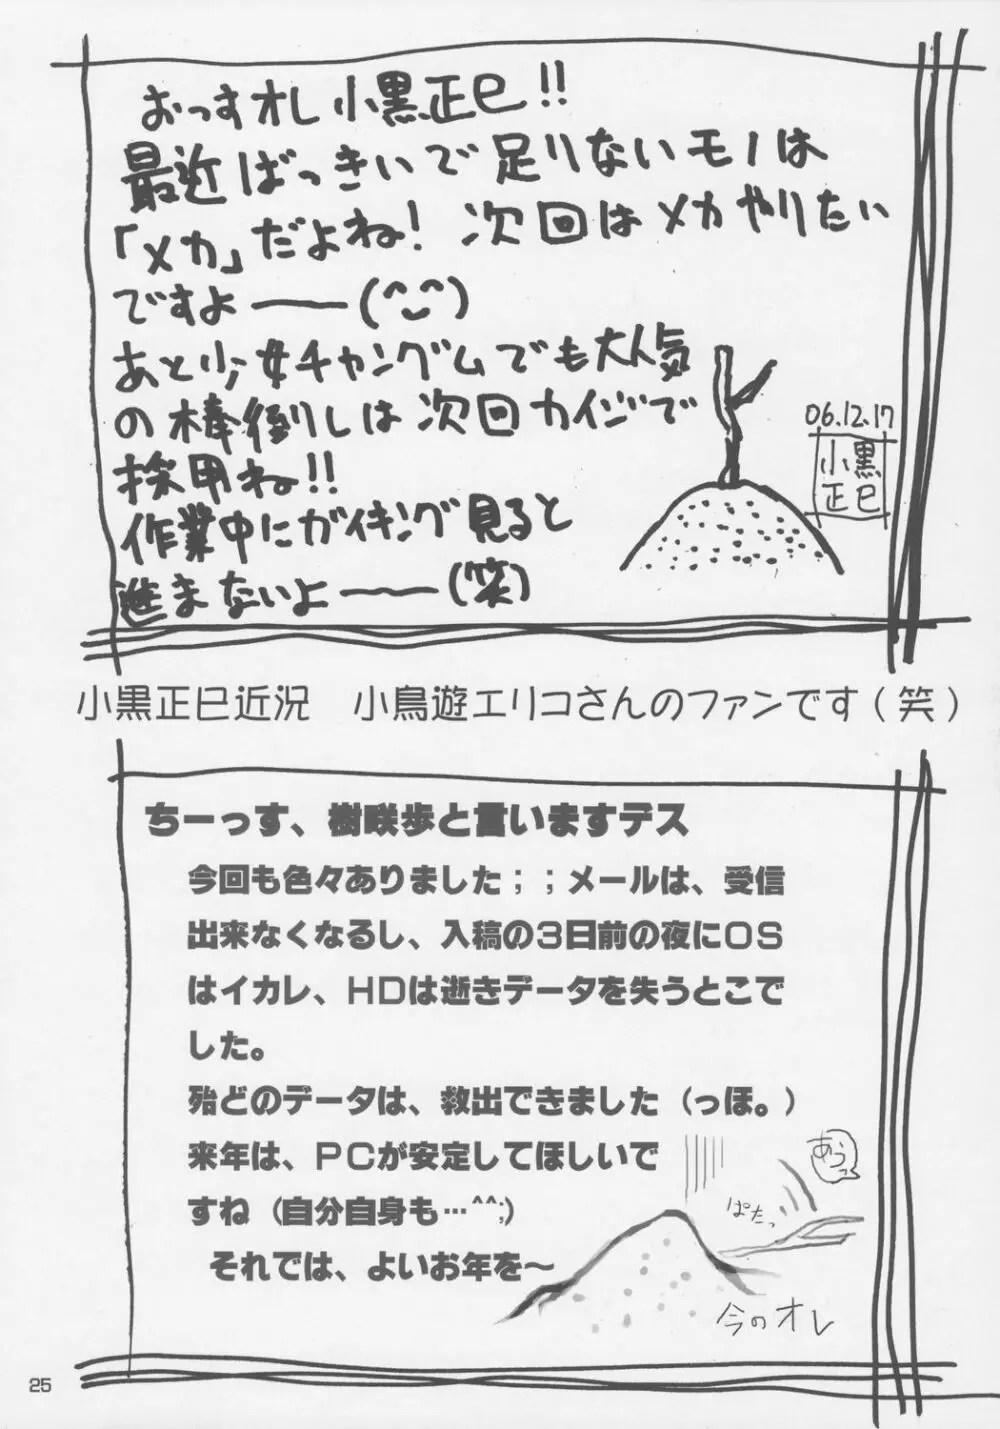 おっすオレ小黒正巳!!
最近ばっきいで足りないモノは
「メカ」だよね! 次回はメカやりたい
ですよ――(^‿^)
あと少女チャングムでも大人気
の棒倒しは次回カイジで
採用ね!!
作業中にガイキング見ると
進まないよ――(笑)
06.12.17
小黒
正巳
小黒正巳近況　小鳥遊エリコさんのファンです(笑)
ちーっす、樹咲歩と言いますデス
今回も色々ありました；；メールは、受信
出来なくなるし、入稿の3日前の夜にOS
はイカレ、HDは逝きデータを失うとこで
した。
殆どのデータは、救出できました（っほ。）
来年は、PCが安定してほしいで
すね（自分自身も…^^;)
それでは、よいお年を～
あうっ
ぱたっ
今のオレ
25